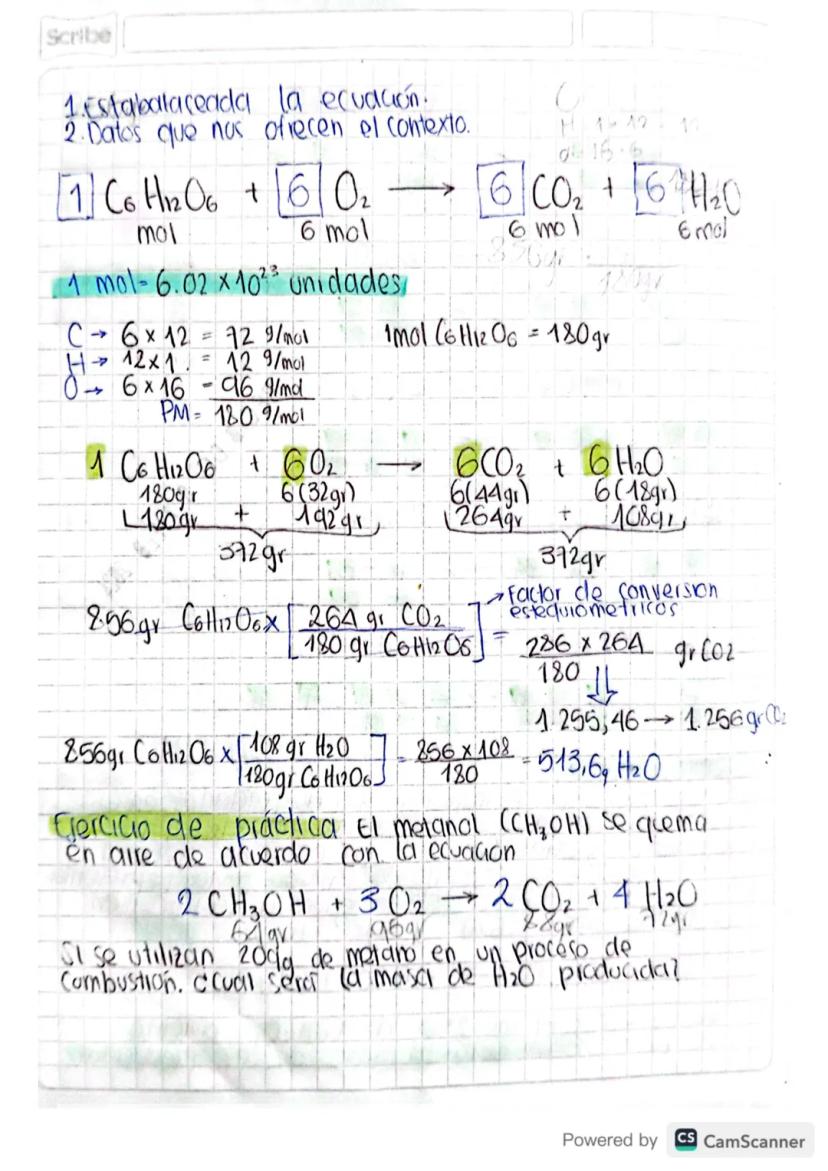 Scribe
1. Estabalaceada la ecuación.
2. Datos que nos ofrecen el contexto.
1 C6 H12 O6 + 6 O2 → 6 CO2 + 6 H2O
mol 6 mol 6 mol 6 mol
1 mol = 6.02 x 10²³ unidades
C → 6 x 12 = 72 g/mol 1mol C6H12O6 = 180gr
H → 12x1. = 12 g/mol
O → 6 x 16 - 96 g/mol
PM = 180 g/mol
1 C6 H12O6 + 6O2 → 6CO2 + 6 H2O
180gr 6(32gr) 6(44gr) 6(18gr)
180gr + 192gr 264gr + 108gr
372gr 372gr
→ Factor de conversion
estequiometricos
856gr C6H12O6 x [264 gr CO2 / 180 gr C6H12O6] = 286 x 264 / 180 gr CO2
⇓
1.255,46 → 1.256gr CO2
856gr C6H12O6 x [108 gr H2O / 180gr C6H12O6] = 856 x 108 / 180 = 513,6g H2O
Ejercicio de práctica El metanol (CH3OH) se quema
en aire de acuerdo con la ecuacion
2 CH3OH + 3 O2 → 2 CO2 + 4 H2O
64gr 96gr 88gr 72gr
Si se utilizan 209g de metano en un proceso de
Combustión. ¿Cual será la masa de H2O producida?
Powered by CS CamScanner